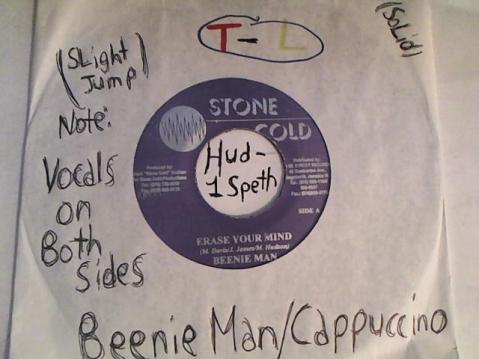 T-L
(SoLid)
(SLight
Jump)
Note:
Vocals
on
Both
Sides
STONE
COLD
Hud-
1 Speth
SIDE A
ERASE YOUR MIND
(M. Davis/J. James/M. Hudson)
BEENIE MAN
Beenie Man/Cappuccino